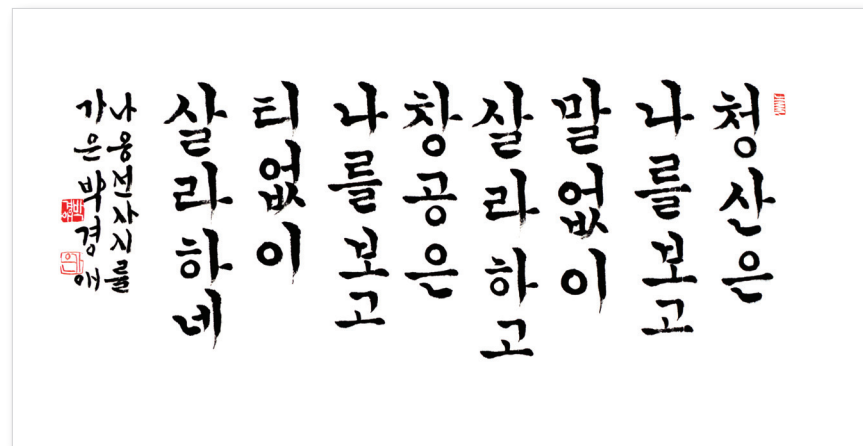 청산은
나를보고
말없이
살라하고
창공은
나를보고
티없이
살라하네
나옹선사시를
가은박경애